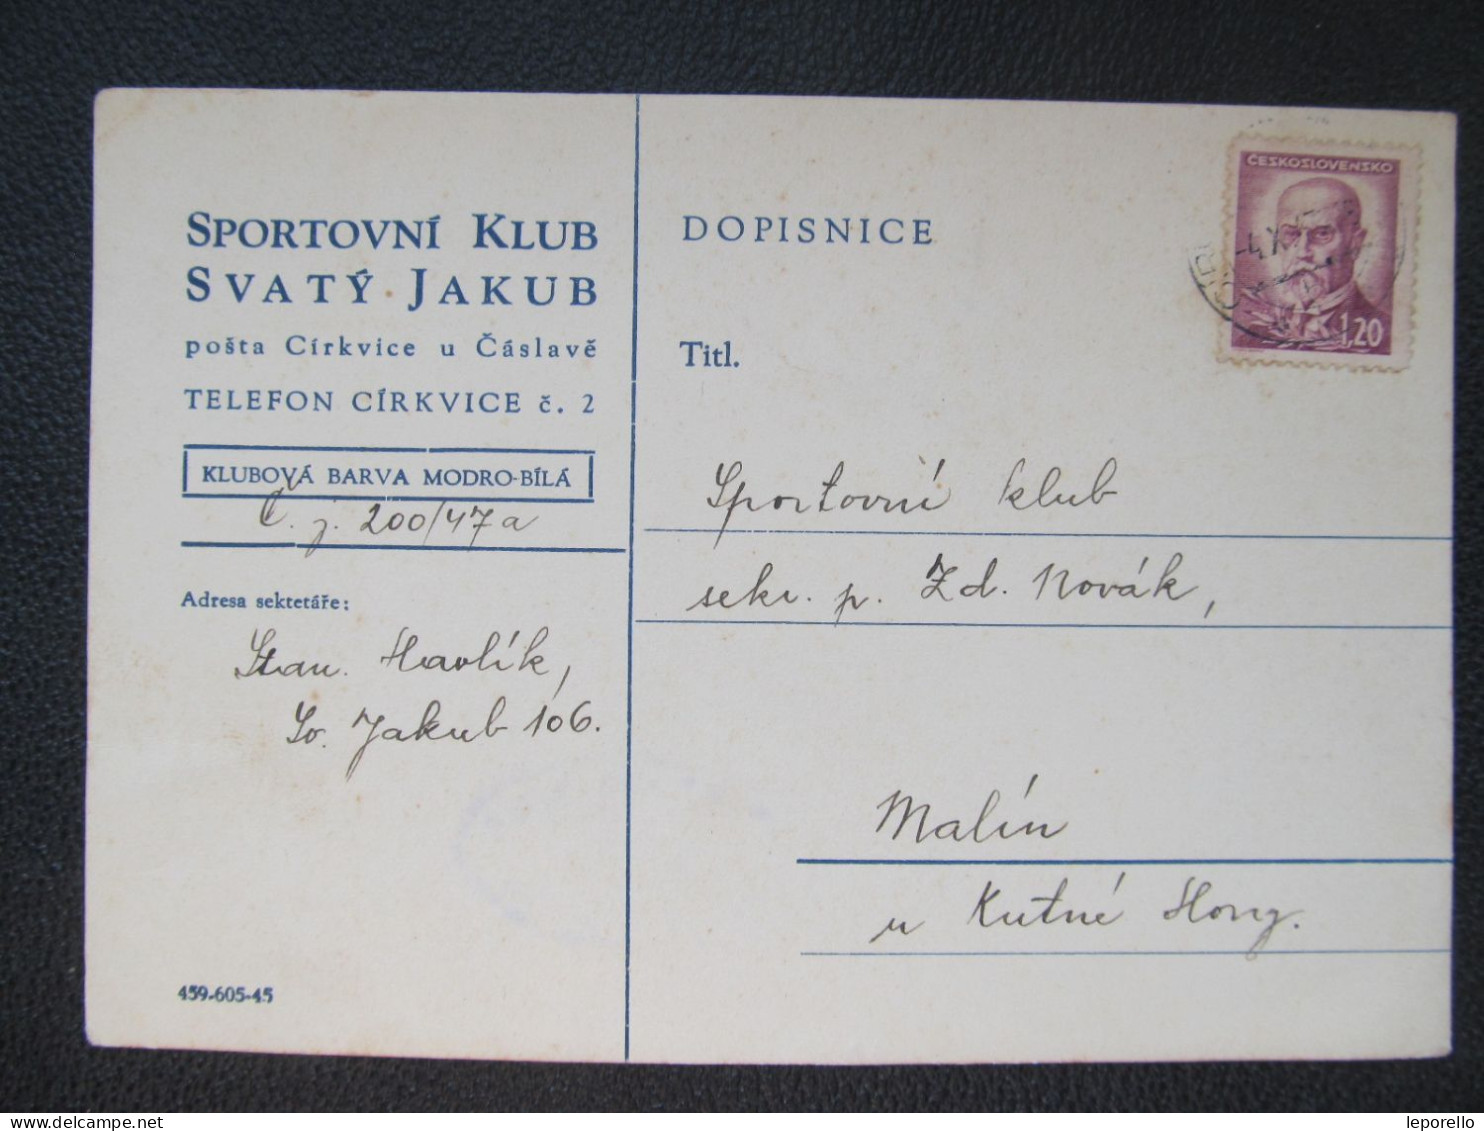 SPORTOVNÍ KLUB
SVATÝ JAKUB
pošta Církvice u Čáslavě
TELEFON CÍRKVICE č. 2
KLUBOVÁ BARVA MODRO-BÍLÁ
Č. j. 200/47a
Adresa sektetáře:
Stan. Havlík,
Sv. Jakub 106.
459-605-45
DOPISNICE
Titl.
ČESKOSLOVENSKO
K 1,20
-4.X
Sportovní klub
sekr. p. Zd. Novák,
Malín
u Kutné Hory.
leporello